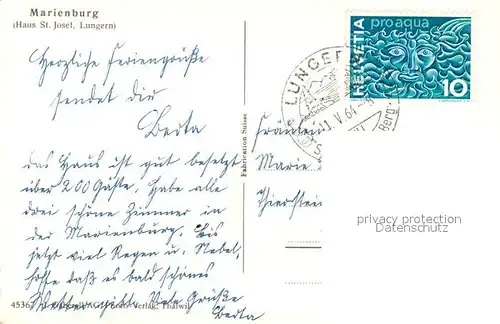 Marienburg
(Haus St. Josef, Lungern)
Herzliche Feriengrüße
sendet dir
Berta
das Haus ist gut besetzt
über 200 Gäste. Habe alle
drei schöne Zimmer in
der Marienburg. Bis
jetzt viel Regen u. Nebel,
hoffe daß es bald schönes
Wetter gibt. Viele Grüße
Berta
45367
Verlag, Thalwil
Fabrication Suisse
LUNGERN
11.V.64
Berg
HELVETIA
pro aqua
10
Fräulein
Marie
Thierstein
privacy protection
Datenschutz